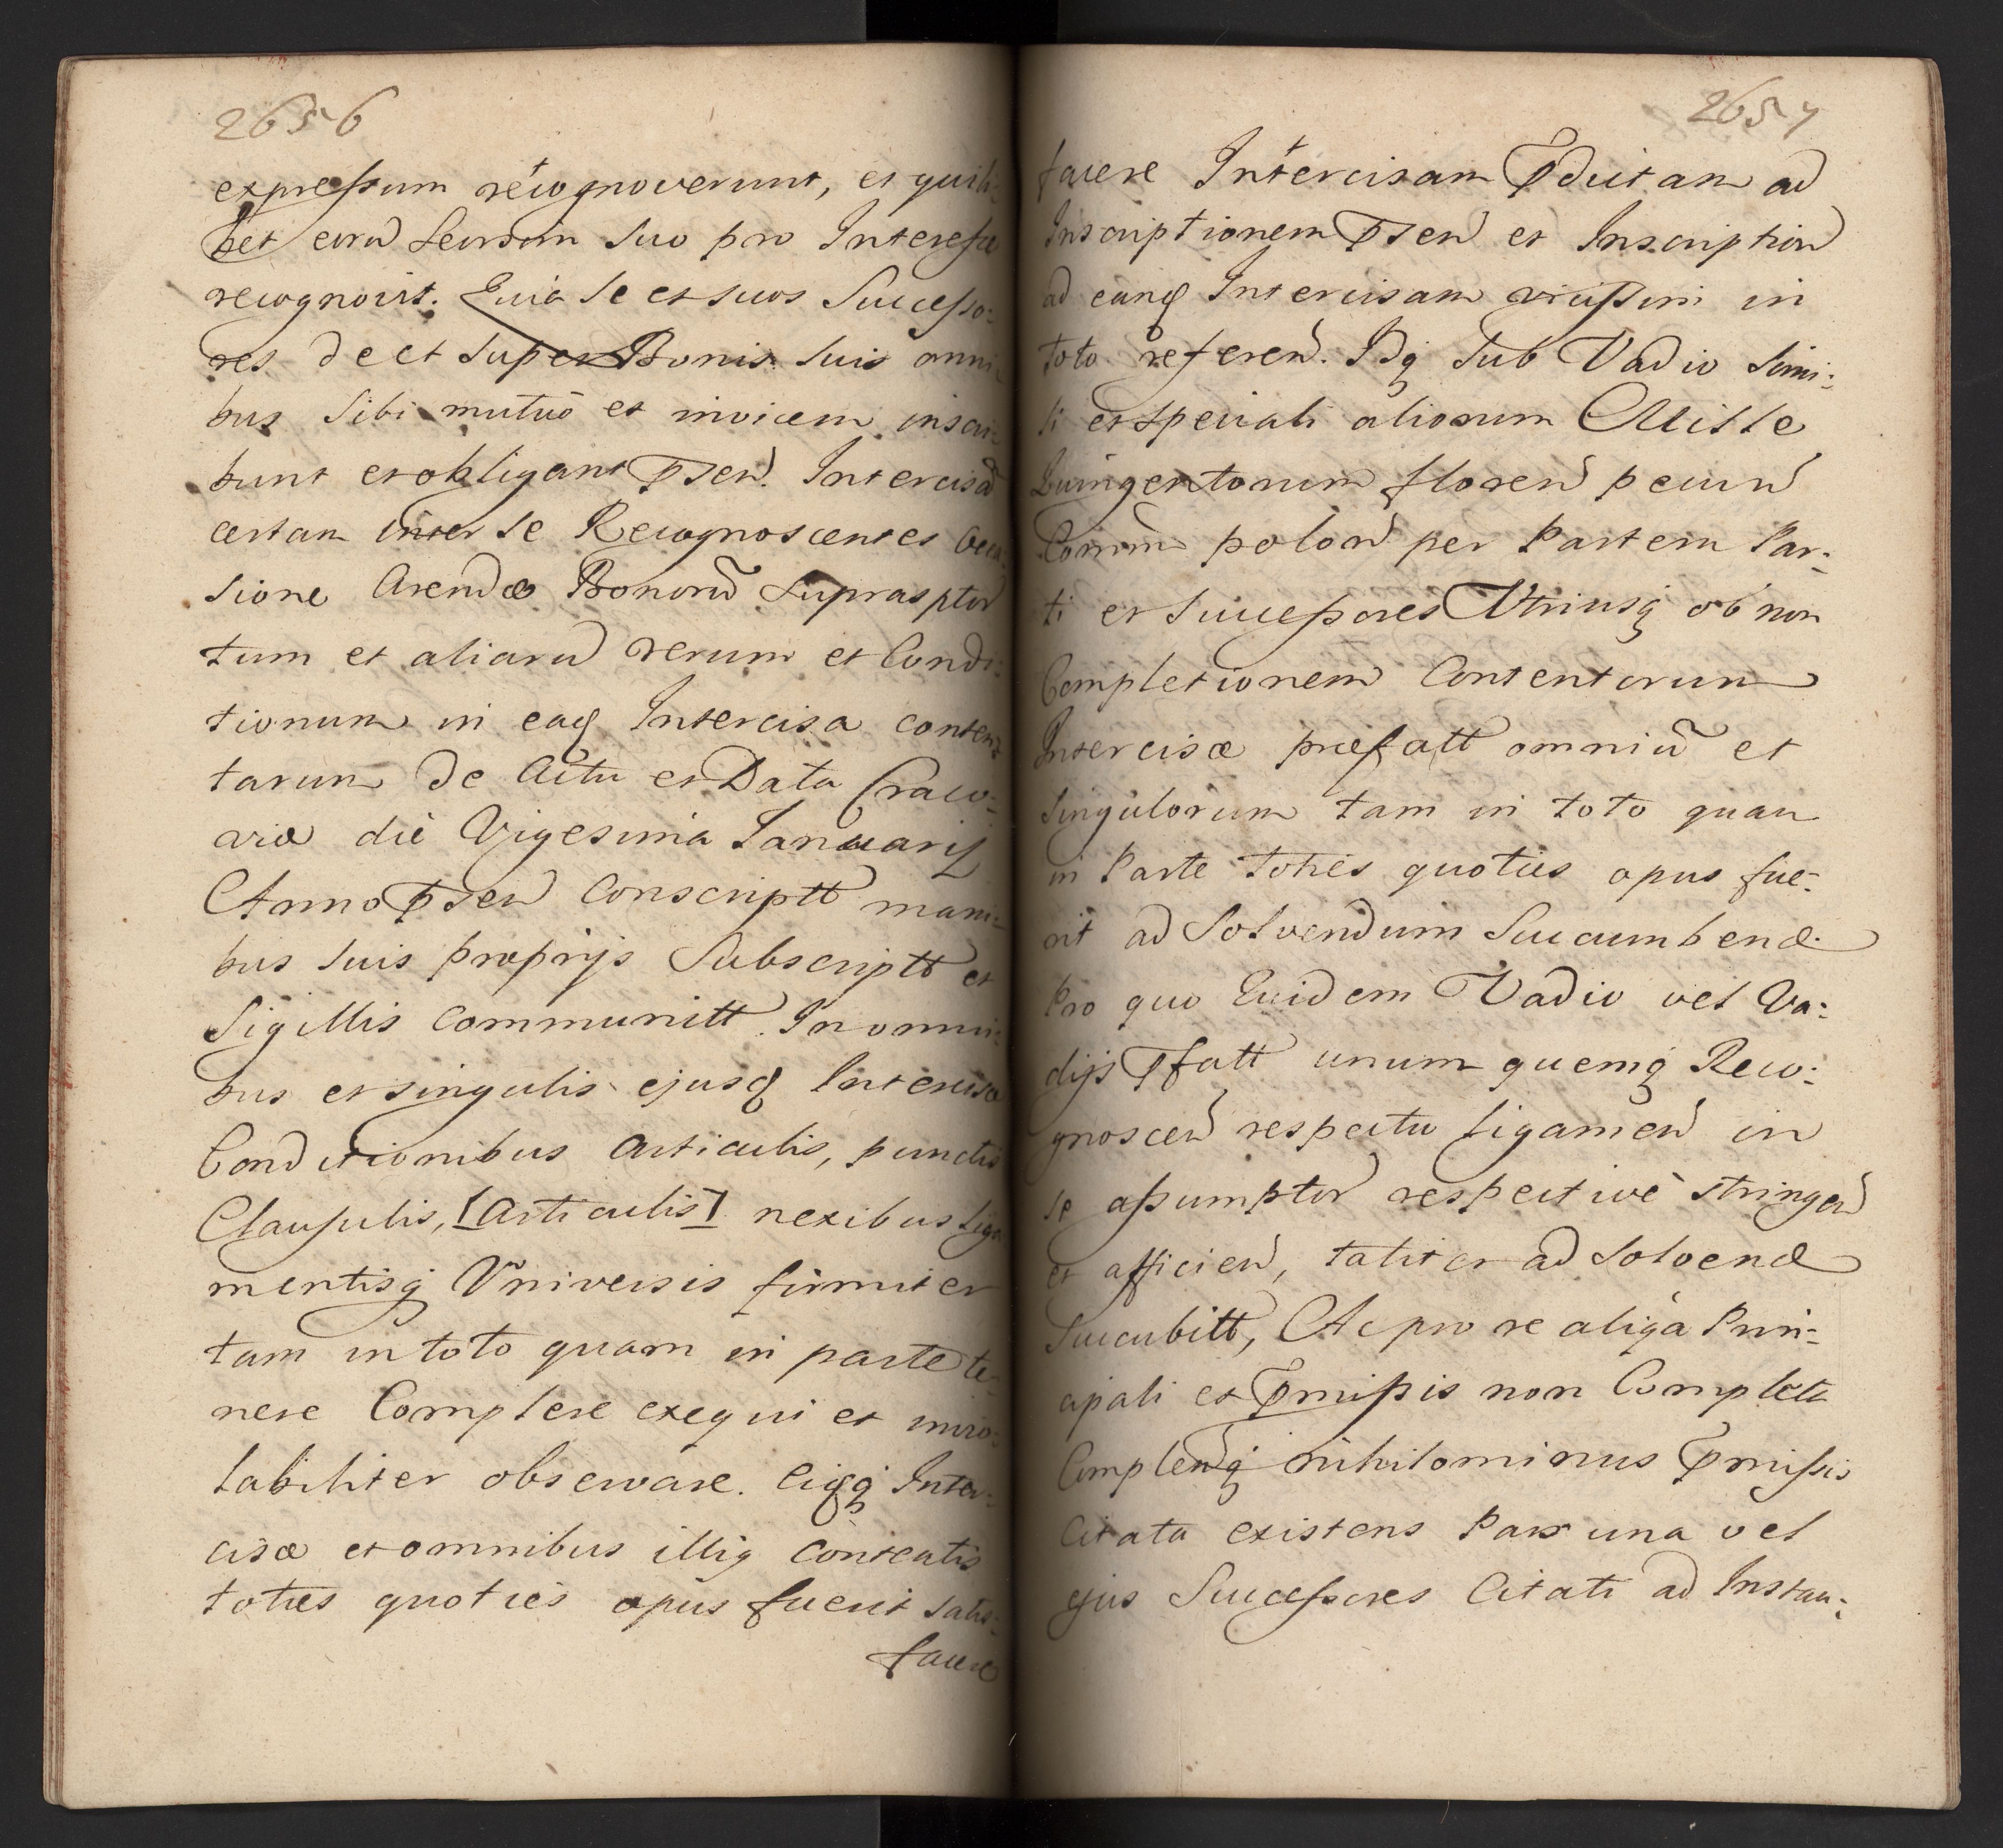 2656
expressum recognoverunt, et quili-
bet eorū seorsim suo pro Interesse
recognovit. Quia se et suos Successo:
res de et super Bonis suis omni-
bus sibi mutuò et invicem inscri-
bunt et obligant p̄sen. Intercisā
certam inter se Recognoscentes occa-
sione Arendæ Bonorū suprasptor
tum et aliarū rerum et Condi:
tionum in eaq Intercisa conten-
tarum de Actu et Data Craco-
viæ die Vigesima Januarij
Anno p̄sen Conscriptt mani-
bus suis proprijs Subscriptt et
Sigillis communitt. In omni-
bus et singulis ejusq Intercisæ
Conditionibus Articulis, punctis
Clausulis, [Articulis] nexibus liga
mentisq Universis firmiter
tam in toto quam in parte te-
nere Complere exequi et invio-
labiliter observare. Eiqq Inter-
cisæ et omnibus illiq contentis
toties quoties opus fuerit satis-
facere
2657
facere Intercisam p̄dictam ad
Inscriptionem p̄sen et Inscription
ad eanq Intercisam vicissim in
toto referen. Idq sub Vadio simi:
li et speciali aliorum Mille
Quingentorum floren pecun
Comm polon per Partem Par-
ti et Successores Utriusq ob non
Completionem Contentorum
Intercisæ præfatt omniū et
singulorum tam in toto quam
in Parte toties quoties opus fue-
rit ad Solvendum Succumbend.
Pro quo Quidem Vadio vel Va:
dijs p̄fatt unum quemq Reco:
gnoscen respectu ligamen in
se assumptor respectivè stringen
et afficien, taliter ad Solvend
Succubitt, Ac pro re aliqa Prin-
cipali et p̄missis non Completis
Complenq nihilominus p̄missis
Citata existens Pars una vel
ejus Successores Citati ad Instan: